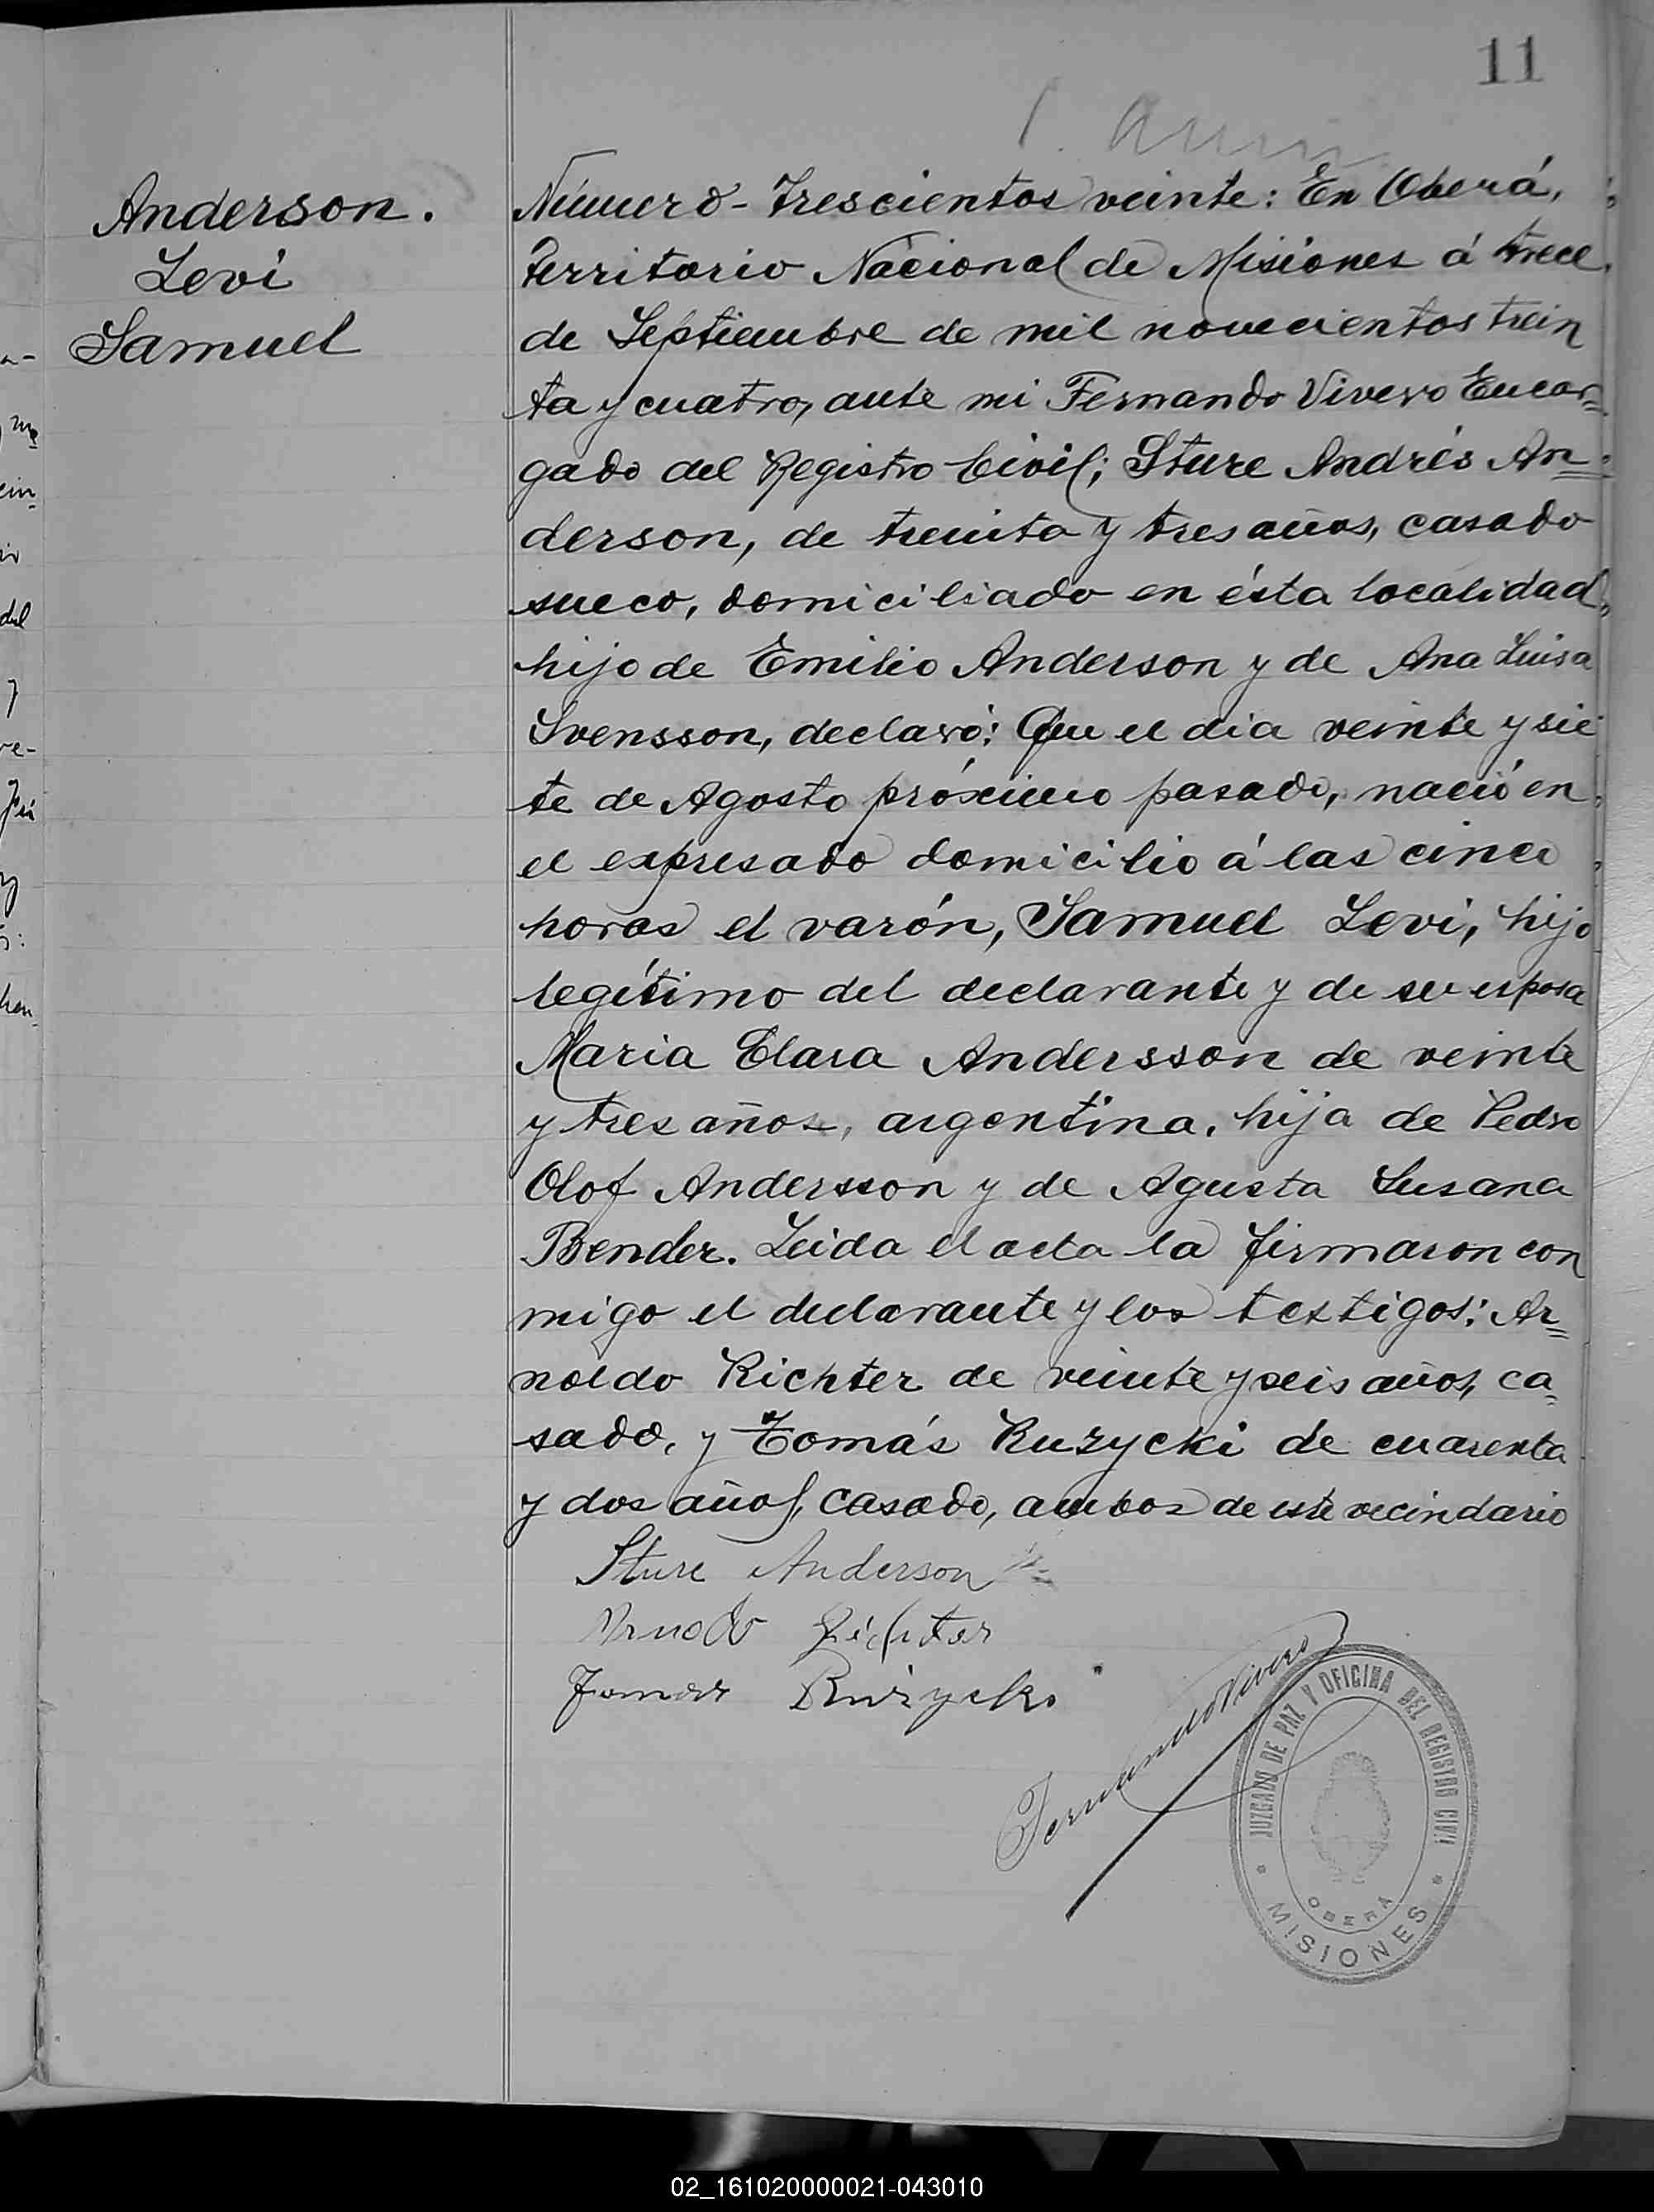 11
Anderson.
Levi
Samuel
Número- Trescientos veinte: En Oberá,
Territorio Nacional de Misiones á trece
de Septiembre de mil novecientos trein
ta y cuatro, ante mi Fernando Vivero Encar=
gado del Registro Civil; Sture Andrés An=
derson, de treinta y tres años, casado
sueco, domiciliado en ésta localidad,
hijo de Emilio Anderson y de Ana Luisa
Svensson, declaró: Que el dia veinte y sie
te de Agosto próximo pasado, nació en
el expresado domicilio á las cinco
horas el varón, Samuel Levi, hijo
legítimo del declarante y de su esposa
Maria Clara Andersson de veinte
y tres años, argentina, hija de Pedro
Olof Andersson y de Agusta Susana
Bender. Leida el acta la firmaron con
migo el declarante y los testigos: Ar=
noldo Richter de veinte y seis años, ca=
sado, y Tomás Ruzycki de cuarenta
y dos años, casado, ambos de este vecindario
Sture Anderson
Arnoldo Richter
Tomas Ruzycki
Fernando Vivero
JUZGADO DE PAZ Y OFICINA DEL REGISTRO CIVIL
OBERA
* MISIONES *
02_161020000021-043010